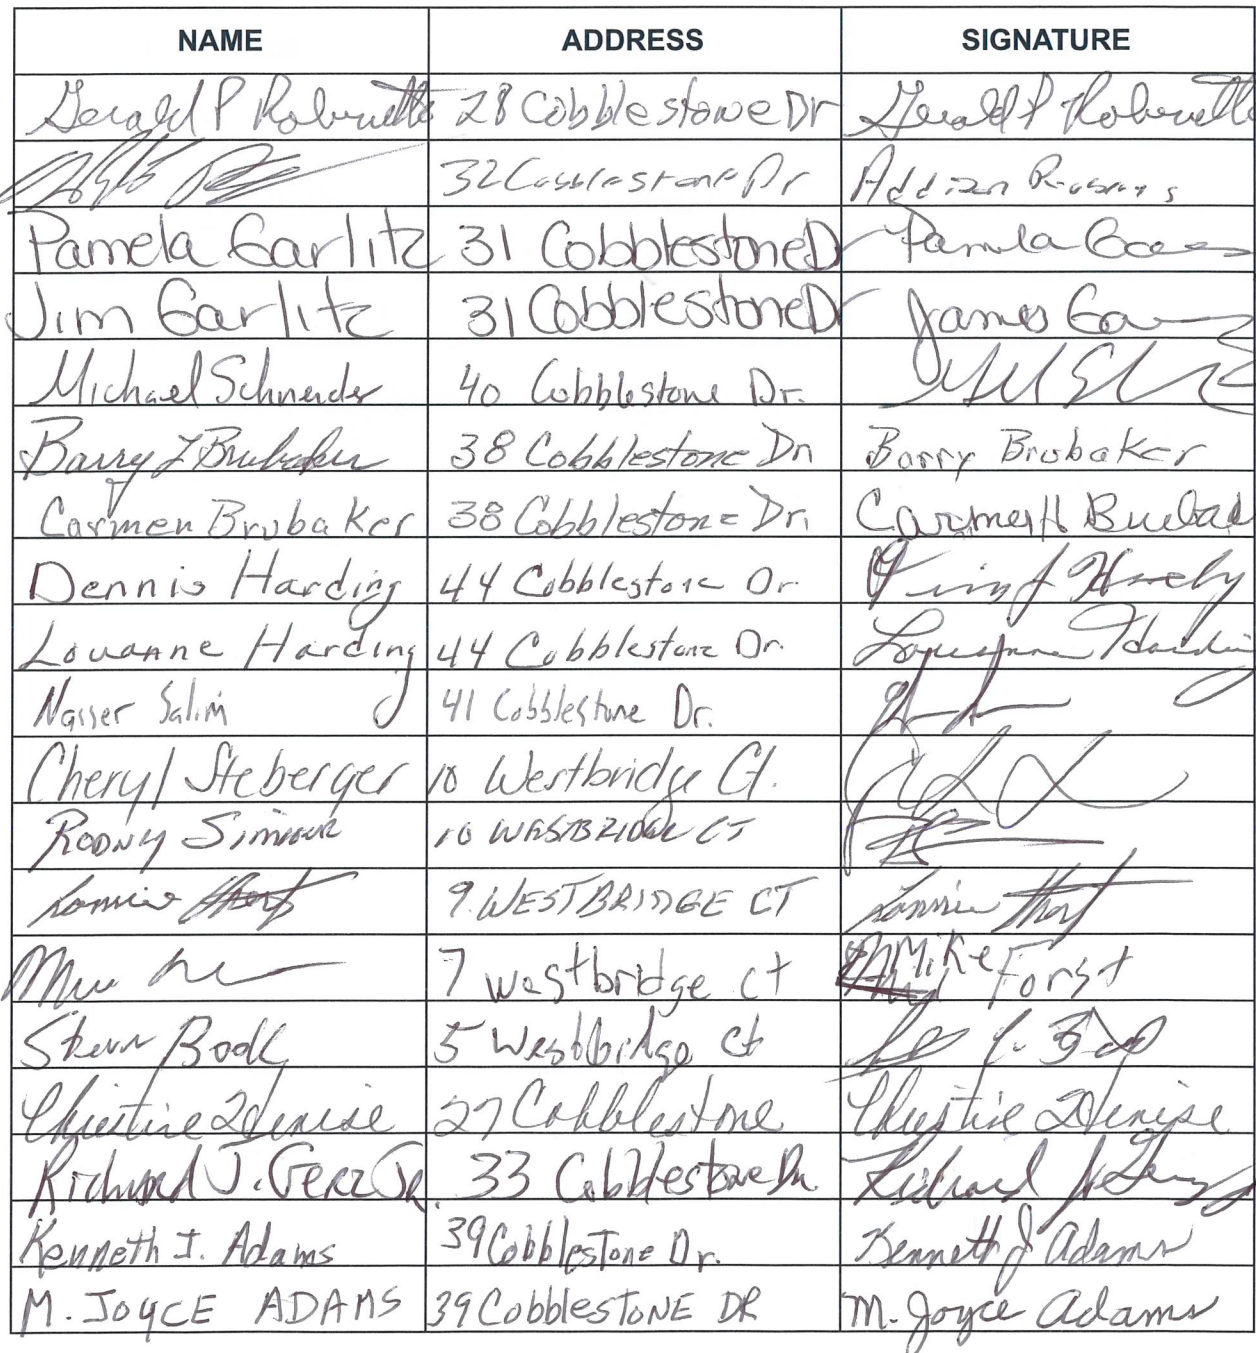 NAME ADDRESS SIGNATURE
Gerald P Robinette 28 Cobblestone Dr Gerald P Robinette
32 Cobblestone Dr Addison
Pamela Garlitz 31 Cobblestone Dr Pamela
Jim Garlitz 31 Cobblestone Dr James
Michael Schneider 40 Cobblestone Dr.
Barry L Brubaker 38 Cobblestone Dr Barry Brubaker
Carmen Brubaker 38 Cobblestone Dr. Carmen H
Dennis Harding 44 Cobblestone Dr
Louanne Harding 44 Cobblestone Dr. Louanne Harding
Nasser Salim 41 Cobblestone Dr.
Cheryl Steberger 10 Westbridge Ct.
RODNY 10 WESTBRIDGE CT
Lonnie 9 WESTBRIDGE CT Lonnie
7 westbridge ct Mike Forst
5 Westbridge Ct
Christine 27 Cobblestone Christine
Richard J. Gerz Jr. 33 Cobblestone Dr. Richard J
Kenneth J. Adams 39 Cobblestone Dr. Kenneth J Adams
M. JOYCE ADAMS 39 CobblestoNE DR M. Joyce Adams